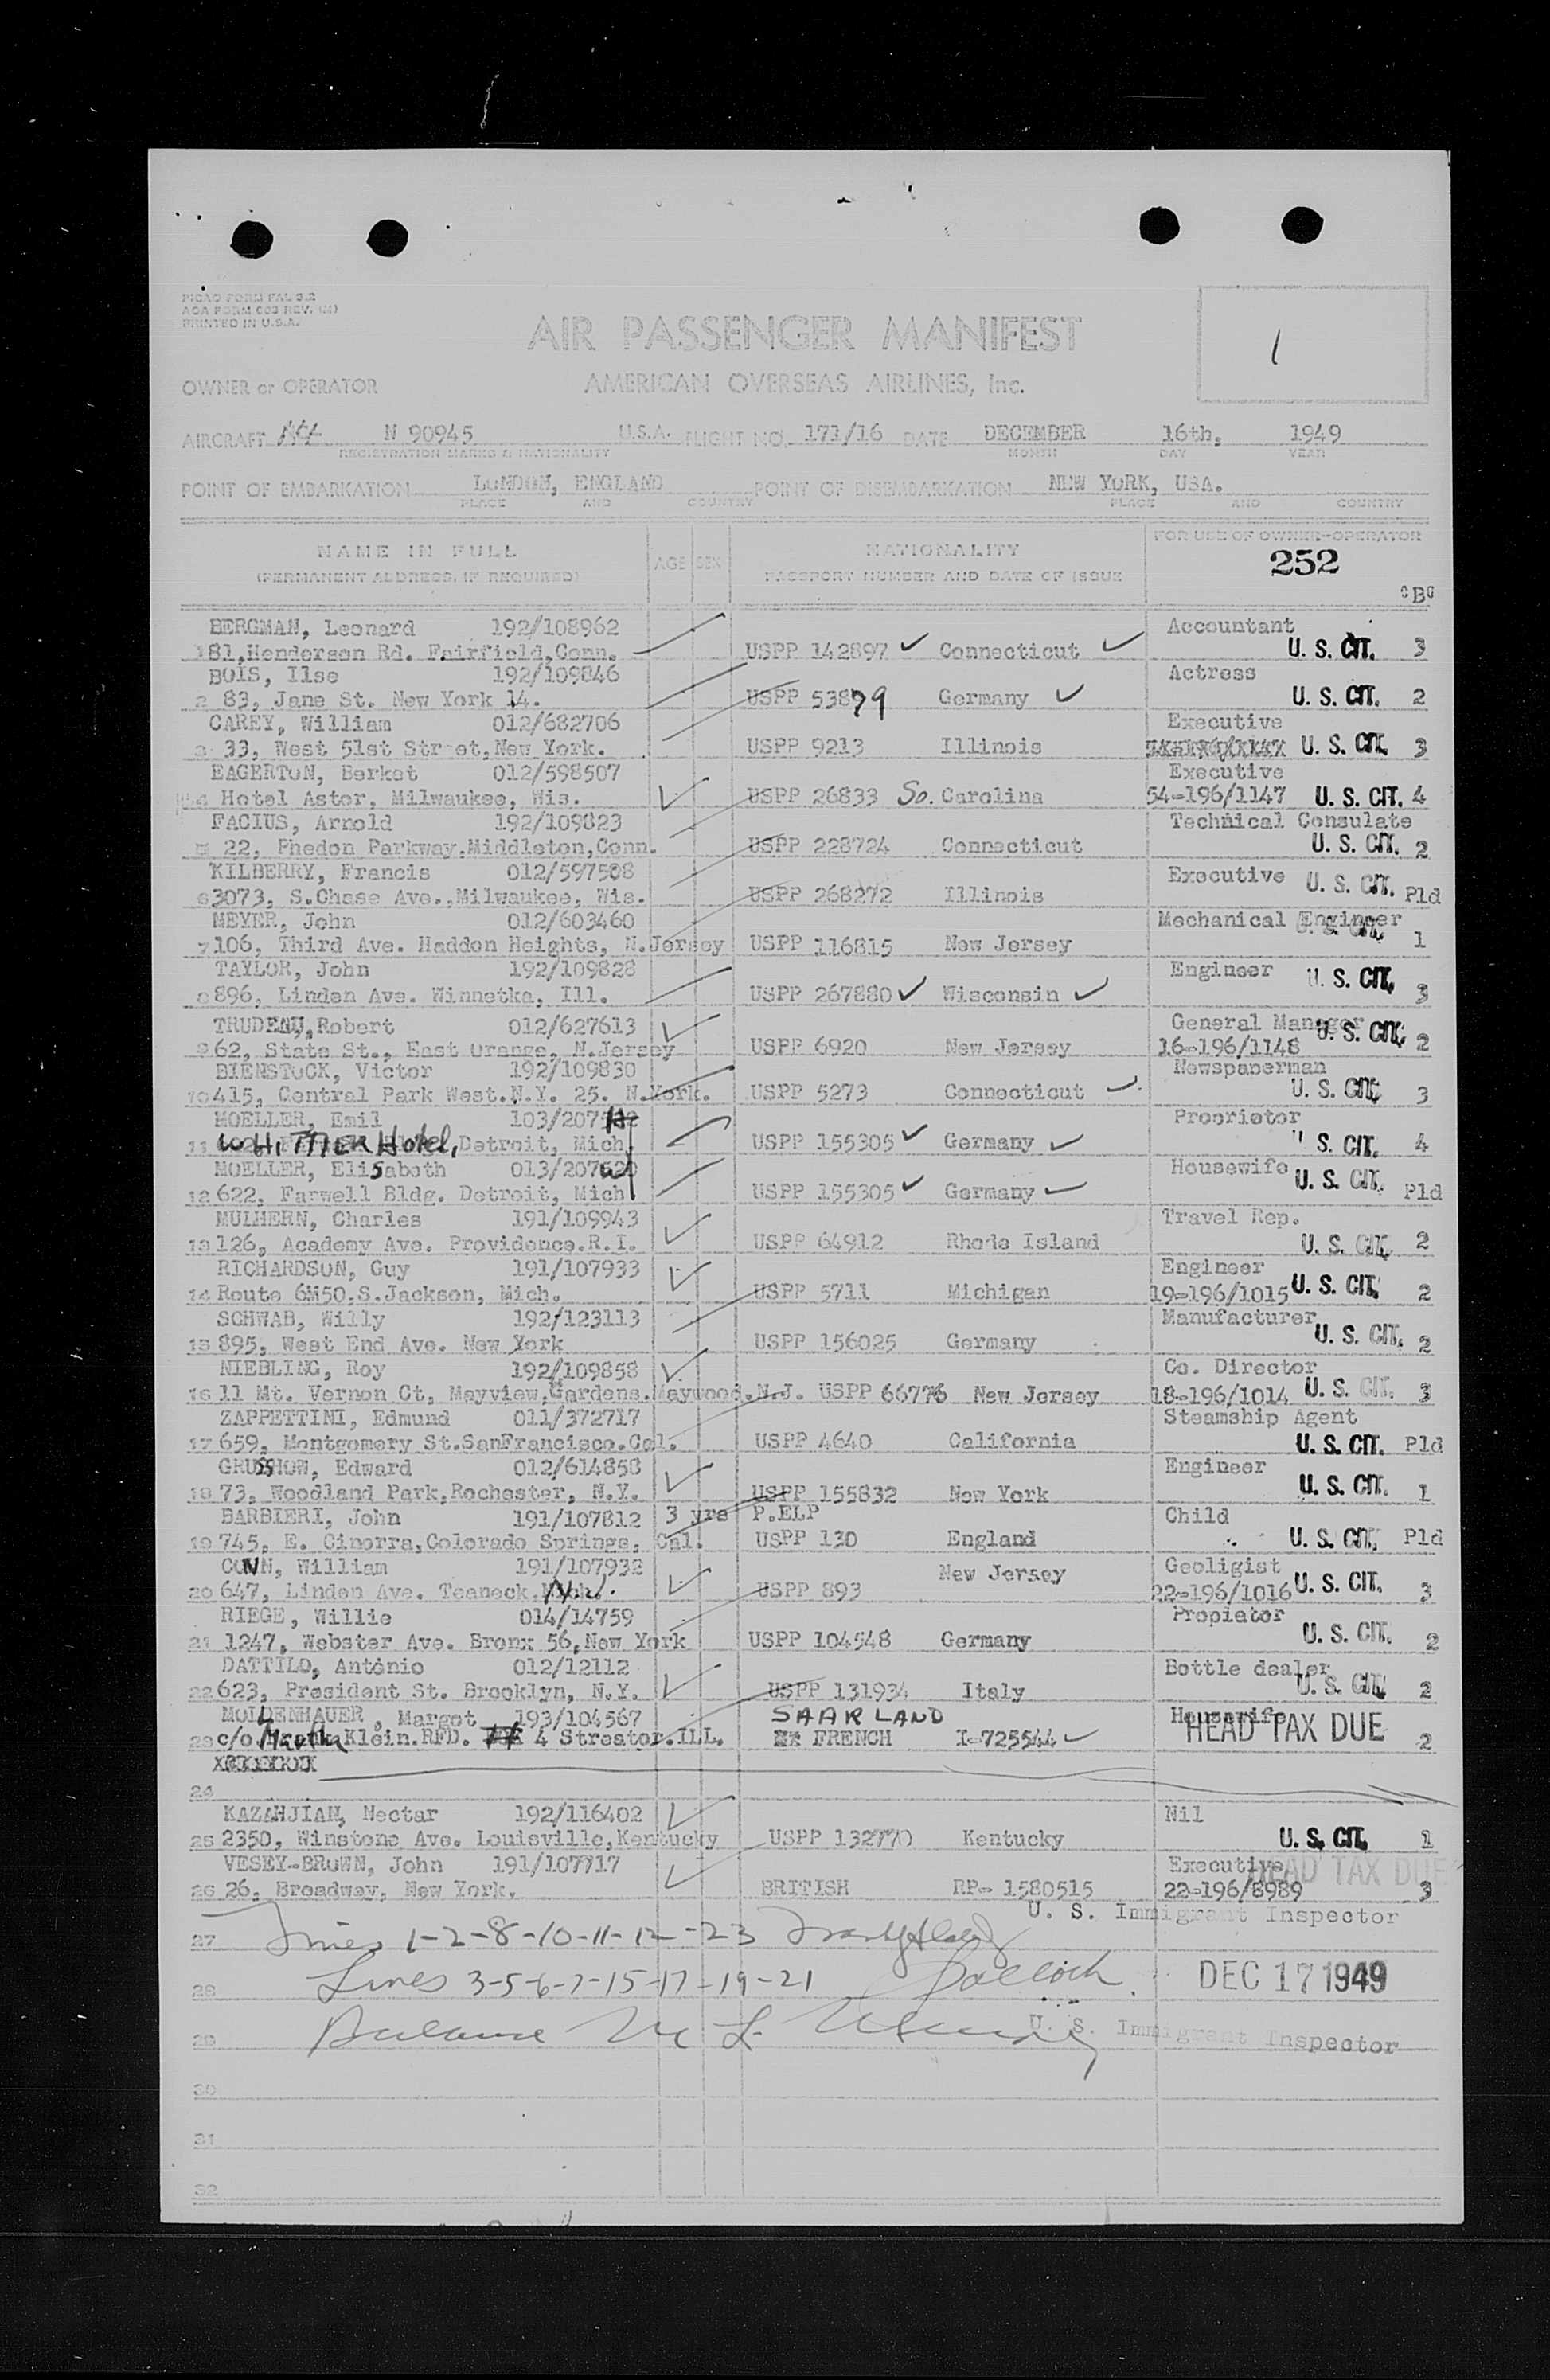 PICAO FORM FAL 3.2
AOA FORM 603 REV. (M)
PRINTED IN U.S.A.
AIR PASSENGER MANIFEST
1
OWNER or OPERATOR AMERICAN OVERSEAS AIRLINES, Inc.
AIRCRAFT N 90945 U.S.A. FLIGHT NO. 171/16 DATE DECEMBER 16th, 1949
REGISTRATION MARKS & NATIONALITY MONTH DAY YEAR
POINT OF EMBARKATION LONDON, ENGLAND POINT OF DISEMBARKATION NEW YORK, USA.
PLACE AND COUNTRY PLACE AND COUNTRY
NAME IN FULL AGE SEX NATIONALITY FOR USE OF OWNER-OPERATOR
(PERMANENT ADDRESS, IF REQUIRED) PASSPORT NUMBER AND DATE OF ISSUE 252
"B"
BERGMAN, Leonard 192/108962 Accountant
1 81, Henderson Rd. Fairfield, Conn. USPP 142897 Connecticut U. S. CIT. 3
BOIS, Ilse 192/109846 Actress
2 83, Jane St. New York 14. USPP 53879 Germany U. S. CIT. 2
CAREY, William 012/682706 Executive
3 33, West 51st Street, New York. USPP 9213 Illinois U. S. CIT. 3
EAGERTON, Berket 012/598507 Executive
4 Hotel Astor, Milwaukee, Wis. USPP 26833 So. Carolina 54-196/1147 U. S. CIT. 4
FACIUS, Arnold 192/109823 Technical Consulate
5 22, Phedon Parkway. Middleton, Conn. USPP 228724 Connecticut U. S. CIT. 2
KILBERRY, Francis 012/597508 Executive
6 3073, S. Chase Ave., Milwaukee, Wis. USPP 268272 Illinois U. S. CIT. Pld
MEYER, John 012/603460 Mechanical Engineer
7 106, Third Ave. Haddon Heights, N.Jersey USPP 116815 New Jersey U. S. CIT. 1
TAYLOR, John 192/109828 Engineer
8 896, Linden Ave. Winnetka, Ill. USPP 267880 Wisconsin U. S. CIT. 3
TRUDEAU, Robert 012/627613 General Manager
9 62, State St., East Orange, N.Jersey USPP 6920 New Jersey 16-196/1148 U. S. CIT. 2
BIENSTOCK, Victor 192/109830 Newspaperman
10 415, Central Park West. N.Y. 25. N.York. USPP 5273 Connecticut U. S. CIT. 3
MOELLER, Emil Proprietor
11 WHITTIER Hotel, Detroit, Mich USPP 155305 Germany S. CIT. 4
MOELLER, Elisabeth Housewife
12 622, Farwell Bldg. Detroit, Mich USPP 155305 Germany U. S. CIT. Pld
MULHERN, Charles 191/109943 Travel Rep.
13 126, Academy Ave. Providence. R.I. USPP 64912 Rhode Island U. S. CIT. 2
RICHARDSON, Guy 191/107933 Engineer
14 Route 6M50. S. Jackson, Mich. USPP 5711 Michigan 19-196/1015 U. S. CIT. 2
SCHWAB, Willy 192/123113 Manufacturer
15 895, West End Ave. New York USPP 156025 Germany U. S. CIT. 2
NIEBLING, Roy 192/109858 Co. Director
16 11 Mt. Vernon Ct, Mayview, Gardens. Maywood. N.J. USPP 66776 New Jersey 18-196/1014 U. S. CIT. 3
ZAPPETTINI, Edmund 011/372717 Steamship Agent
17 659, Montgomery St. SanFrancisco. Cal. USPP 4640 California U. S. CIT. Pld
GRUSHOW, Edward 012/614858 Engineer
18 73, Woodland Park, Rochester, N.Y. USPP 155832 New York U. S. CIT. 1
BARBIERI, John 191/107812 3 yrs P.ELP Child
19 745, E. Cimorra, Colorado Springs, Cal. USPP 130 England U. S. CIT. Pld
CONN, William 191/107932 New Jersey Geoligist
20 647, Linden Ave. Teaneck, N.J. USPP 893 22-196/1016 U. S. CIT. 3
RIEGE, Willie 014/14759 Propietor
21 1247, Webster Ave. Bronx 56, New York USPP 104548 Germany U. S. CIT. 2
DATTILO, Antonio 012/12112 Bottle dealer
22 623, President St. Brooklyn, N.Y. USPP 131934 Italy U. S. CIT. 2
MOLDENHAUER, Margot 193/104567 SAARLAND Housewife
23 c/o Martha Klein. RFD. 4 Streator. ILL. FRENCH I-725544 HEAD TAX DUE 2
24
KAZAHJIAN, Nectar 192/116402 Nil
25 2350, Winstone Ave. Louisville, Kentucky USPP 132770 Kentucky U. S. CIT. 1
VESEY-BROWN, John 191/107717 Executive HEAD TAX DUE
26 26, Broadway, New York. BRITISH RP- 1580515 22-196/8989 3
U. S. Immigrant Inspector
27 Lines 1-2-8-10-11-12-23
28 Lines 3-5-6-7-15-17-19-21 Pollock DEC 17 1949
29 Balance U. S. Immigrant Inspector
30
31
32